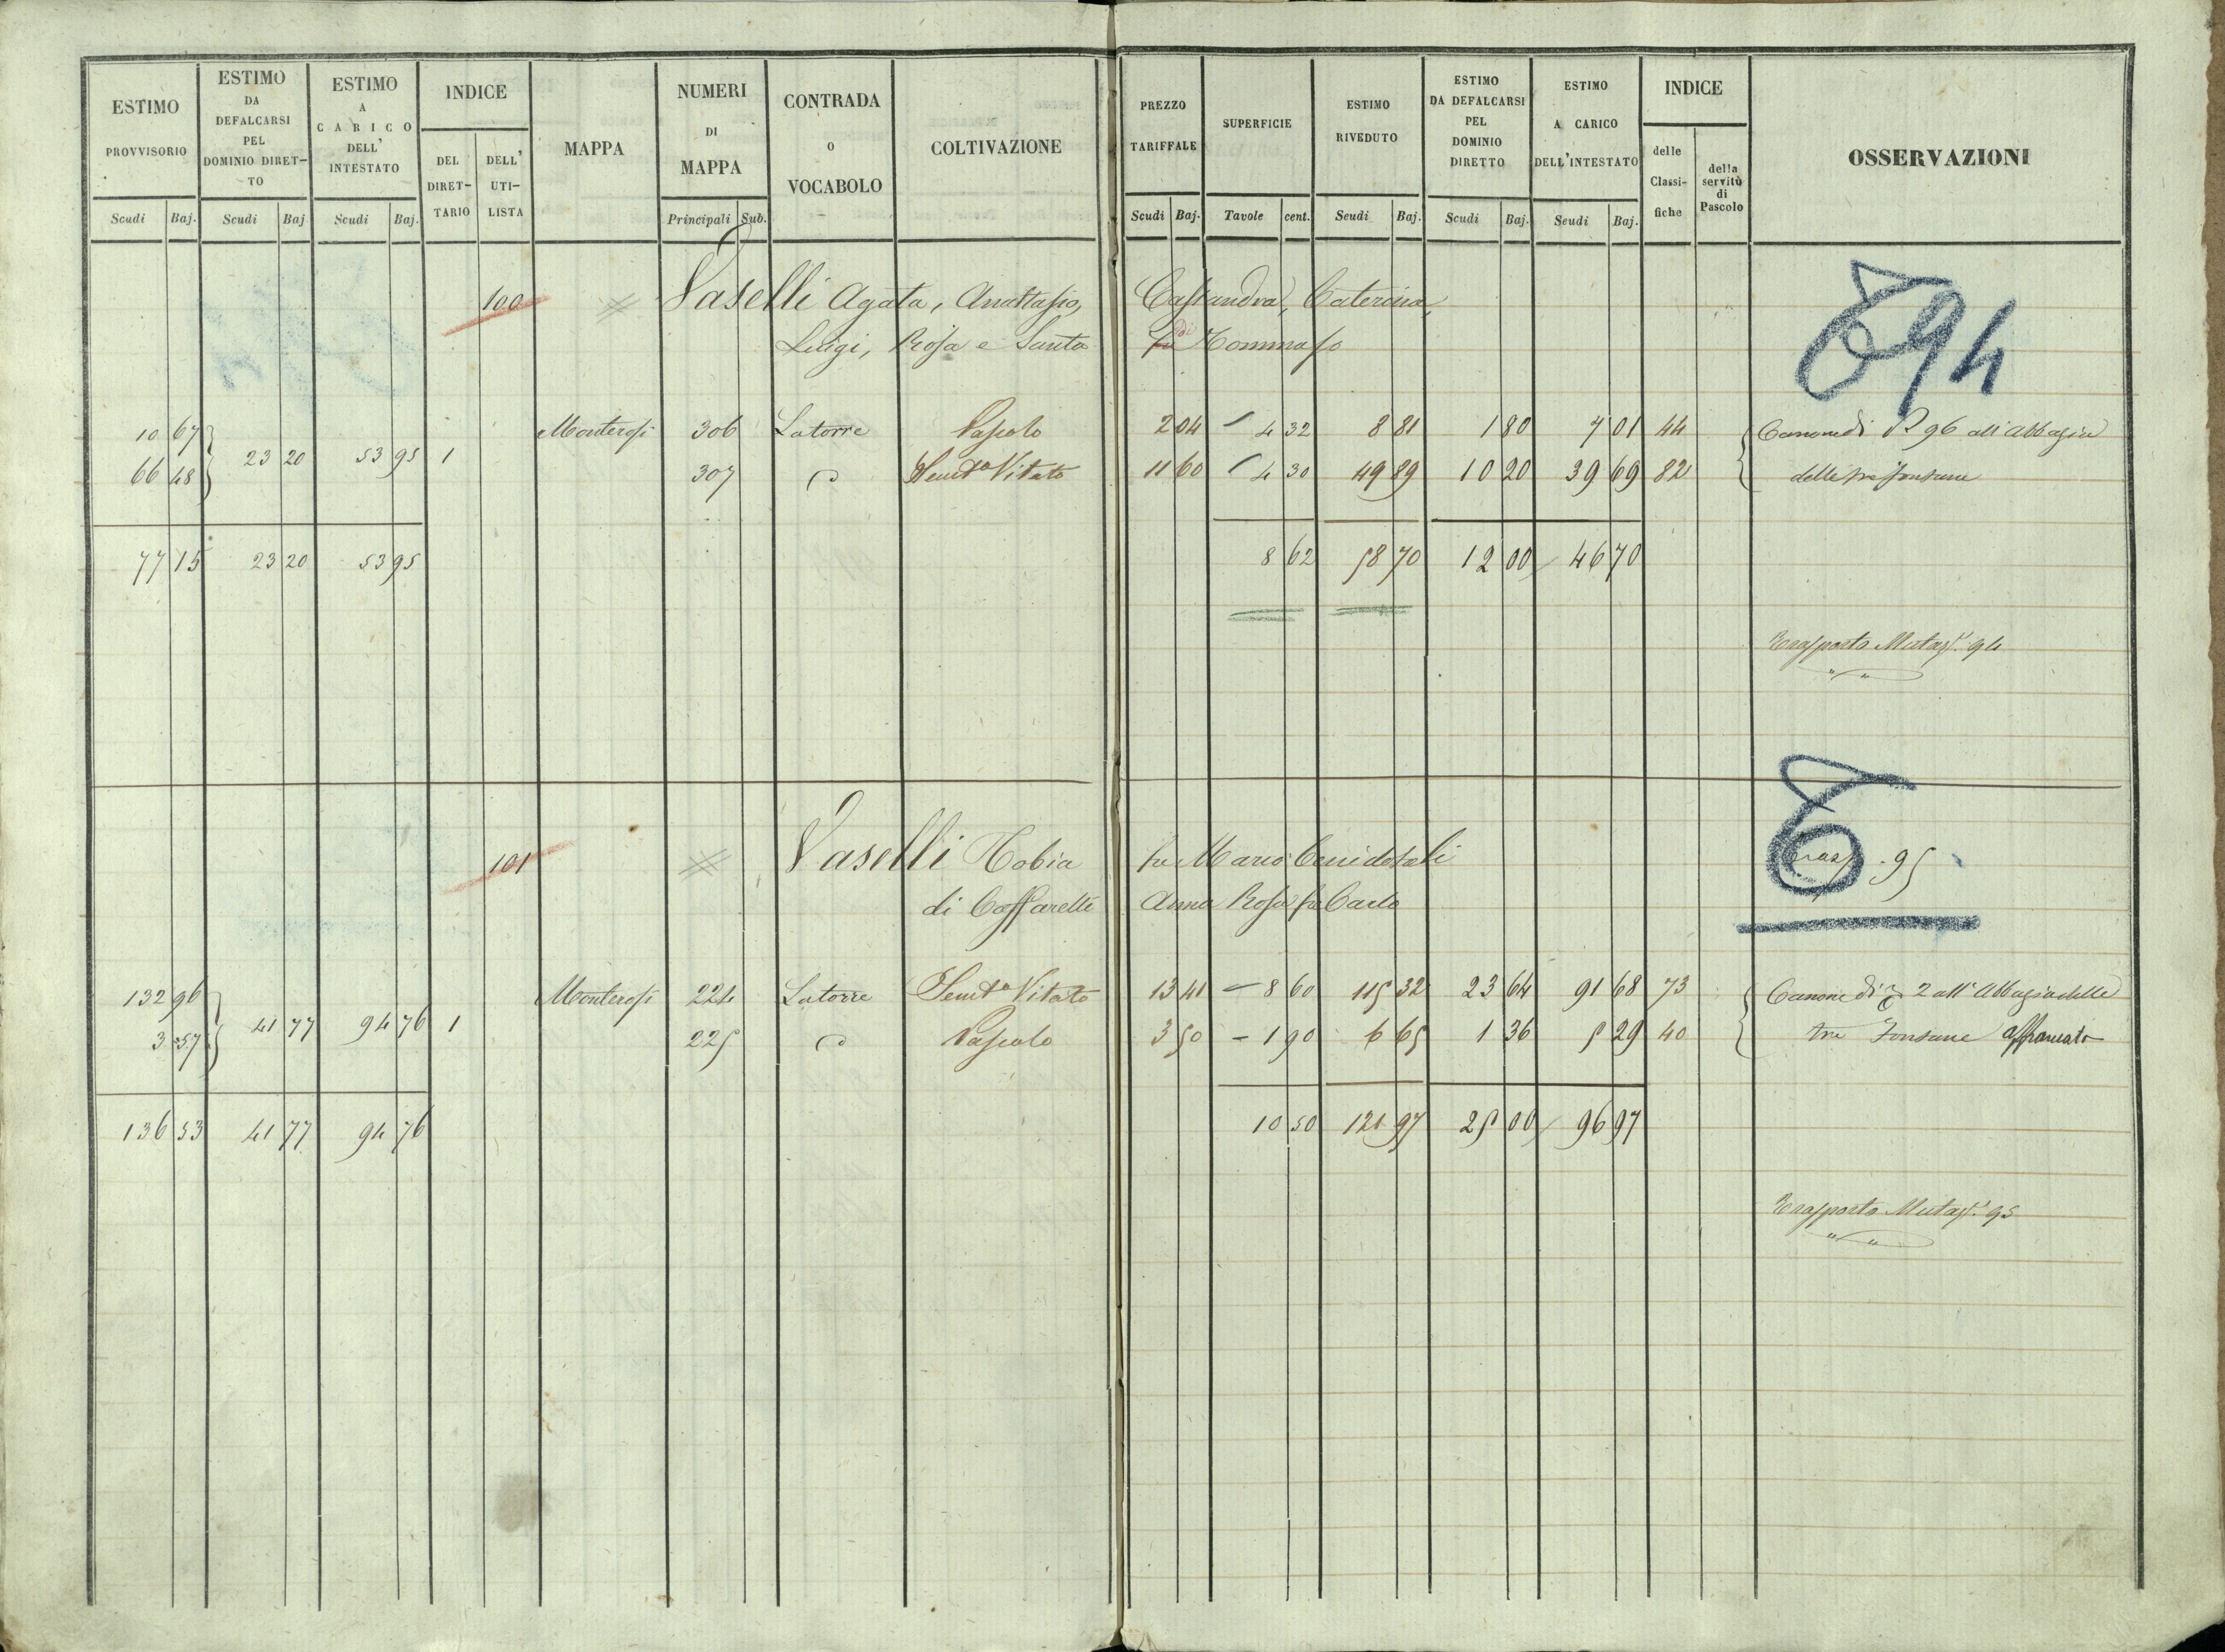 ESTIMO PROVVISORIO Scudi Baj.
ESTIMO DA DEFALCARSI PEL DOMINIO DIRET-TO Scudi Baj
ESTIMO A CARICO DELL' INTESTATO Scudi Baj.
INDICE DEL DIRET-TARIO DELL' UTI-LISTA
MAPPA
NUMERI DI MAPPA Principali Sub.
CONTRADA O VOCABOLO
COLTIVAZIONE
PREZZO TARIFFALE Scudi Baj.
SUPERFICIE Tavole cent.
ESTIMO RIVEDUTO Scudi Baj.
ESTIMO DA DEFALCARSI PEL DOMINIO DIRETTO Scudi Baj.
ESTIMO A CARICO DELL'INTESTATO Scudi Baj.
INDICE delle Classi-fiche della servitù di Pascolo
OSSERVAZIONI
100 Vaselli Agata, Anastasio, Cassandra, Caterina,
Luigi, Rosa e Santa fu di Tommaso
694
10 67 Monterosi 306 Latorre Pascolo 2 04 4 32 8 81 1 80 7 01 44 Canone di 96 all'Abbazia
66 48 23 20 53 95 1 307 Semt° Vitato 11 60 4 30 49 89 10 20 39 69 82 delle tre fontane
77 15 23 20 53 95 8 62 58 70 12 00 46 70
Trasporto Mutaz. 94
101 Vaselli Tobia fu Mario
Trasp. 95
di Caffarelli Anna Rosa fu Carlo
132 96 Monterosi 224 Latorre Semt° Vitato 13 41 8 60 115 32 23 64 91 68 73 Canone di 2 all'Abbazia delle
3 57 41 77 94 76 1 225 Pascolo 3 50 1 90 6 65 1 36 5 29 40 tre Fontane affrancato
136 53 41 77 94 76 10 50 121 97 25 00 96 97
Trasporto Mutaz. 95